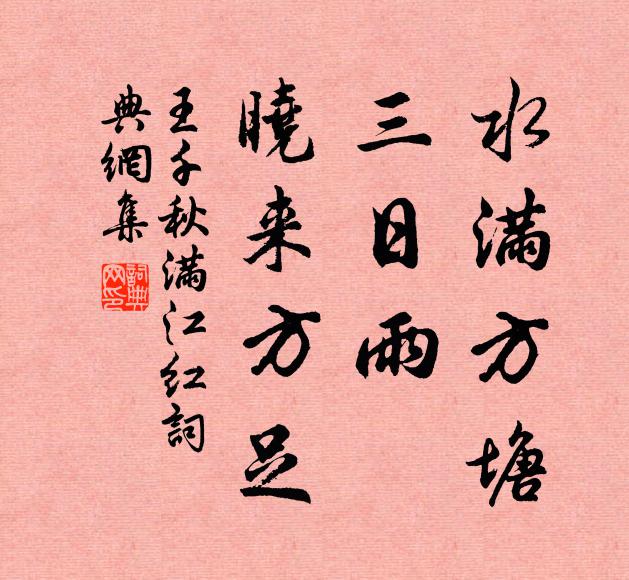 水满方塘
三日雨
曉来方足
王千秋满江红詞
典網集
詞典
网印